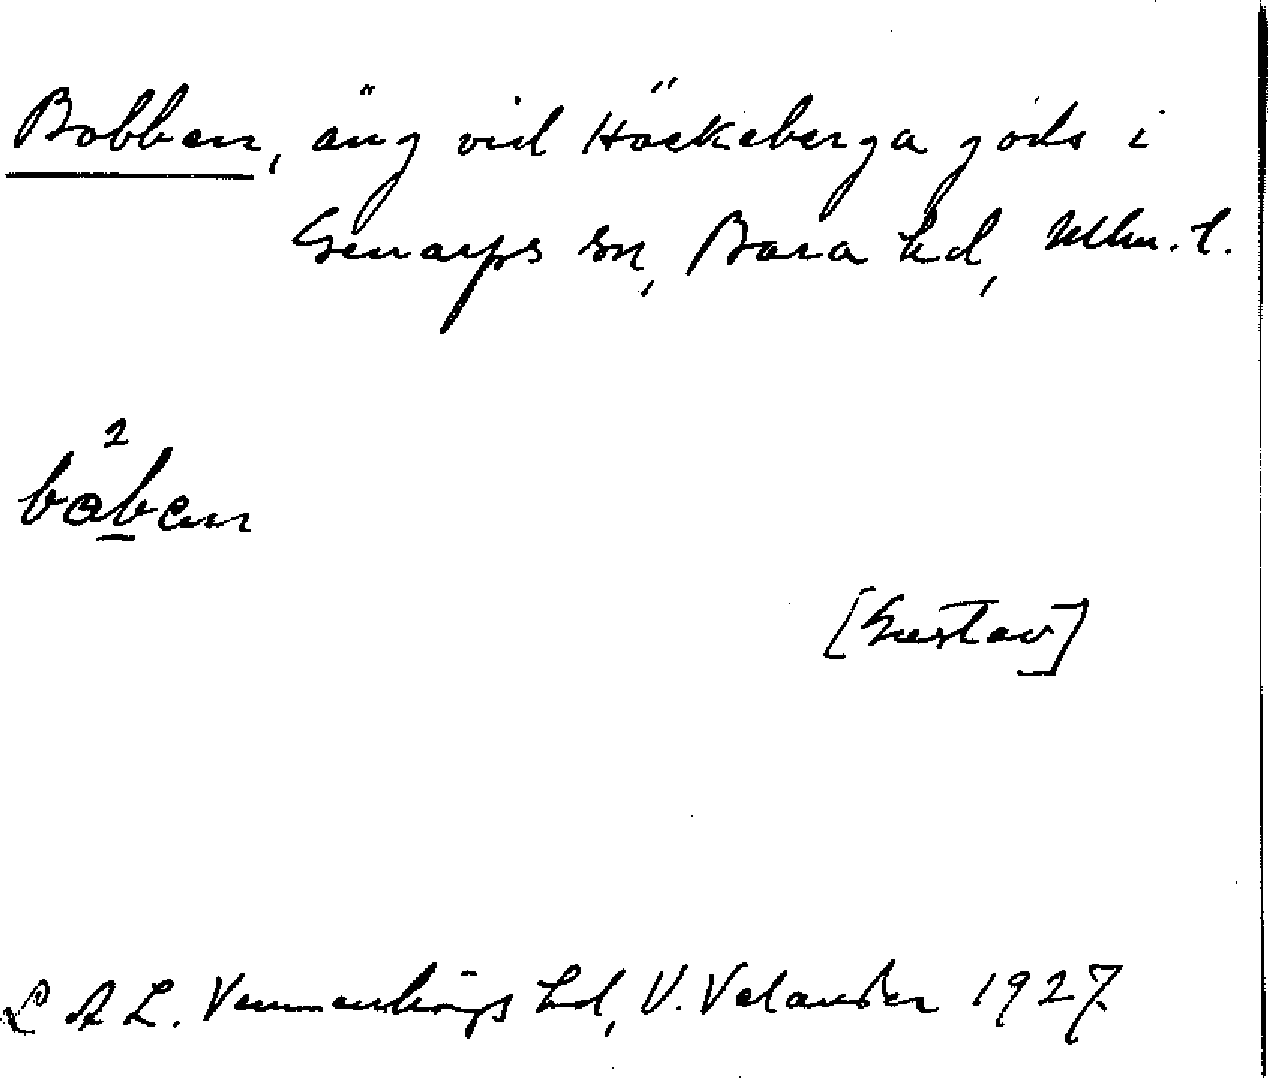 Bobben, äng vid Häckeberga gods i
Genarps sn, Bara hd, Mlm. l.
2
baban
[Gustav]
L A L. Vemmenhögs hd, V. Velander 1927